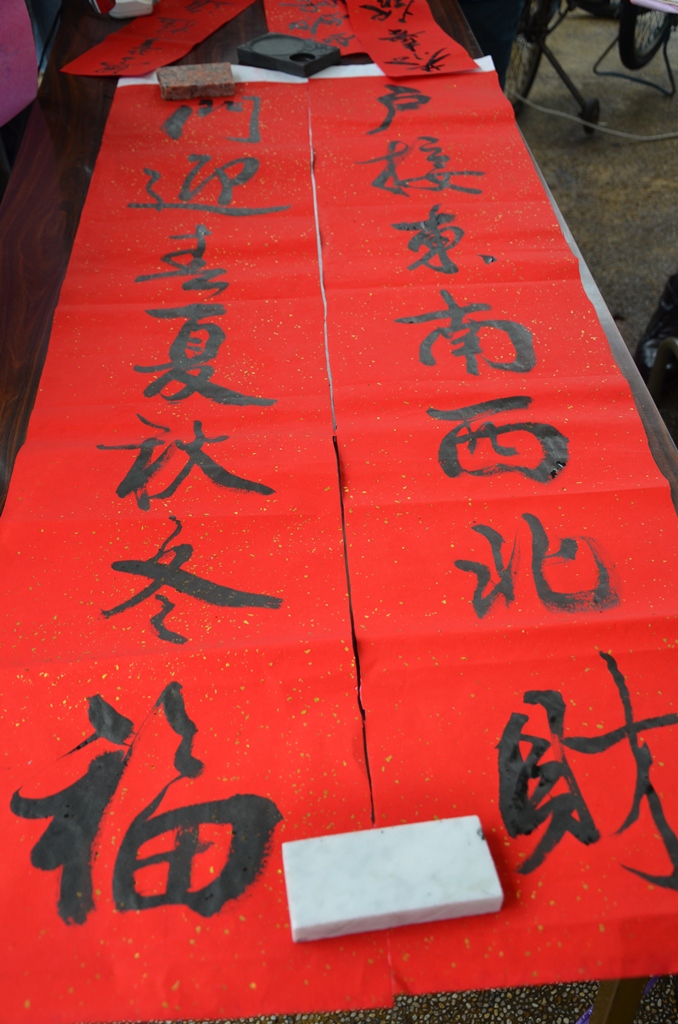 戶接東南西北財
門迎春夏秋冬福